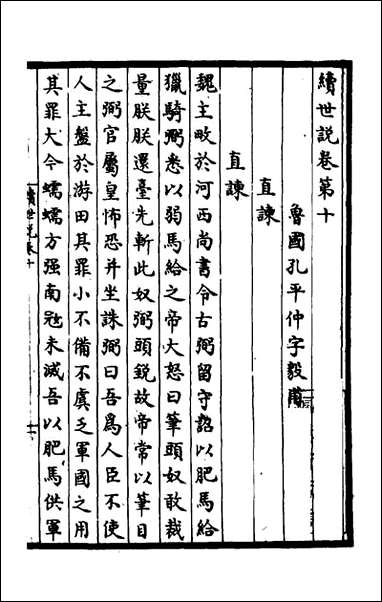 續世説卷第十
魯國孔平仲字毅甫
直諫
直諫
魏主畋於河西尚書令古弼留守詔以肥馬給
獵騎弼悉以弱馬給之帝大怒曰筆頭奴敢裁
量朕朕還臺先斬此奴弼頭鋭故帝常以筆目
之弼官屬皇怖恐并坐誅弼曰吾爲人臣不使
人主盤於游田其罪小不備不虞乏軍國之用
其罪大今蠕蠕方强南冦未滅吾以肥馬供軍
續世説卷十